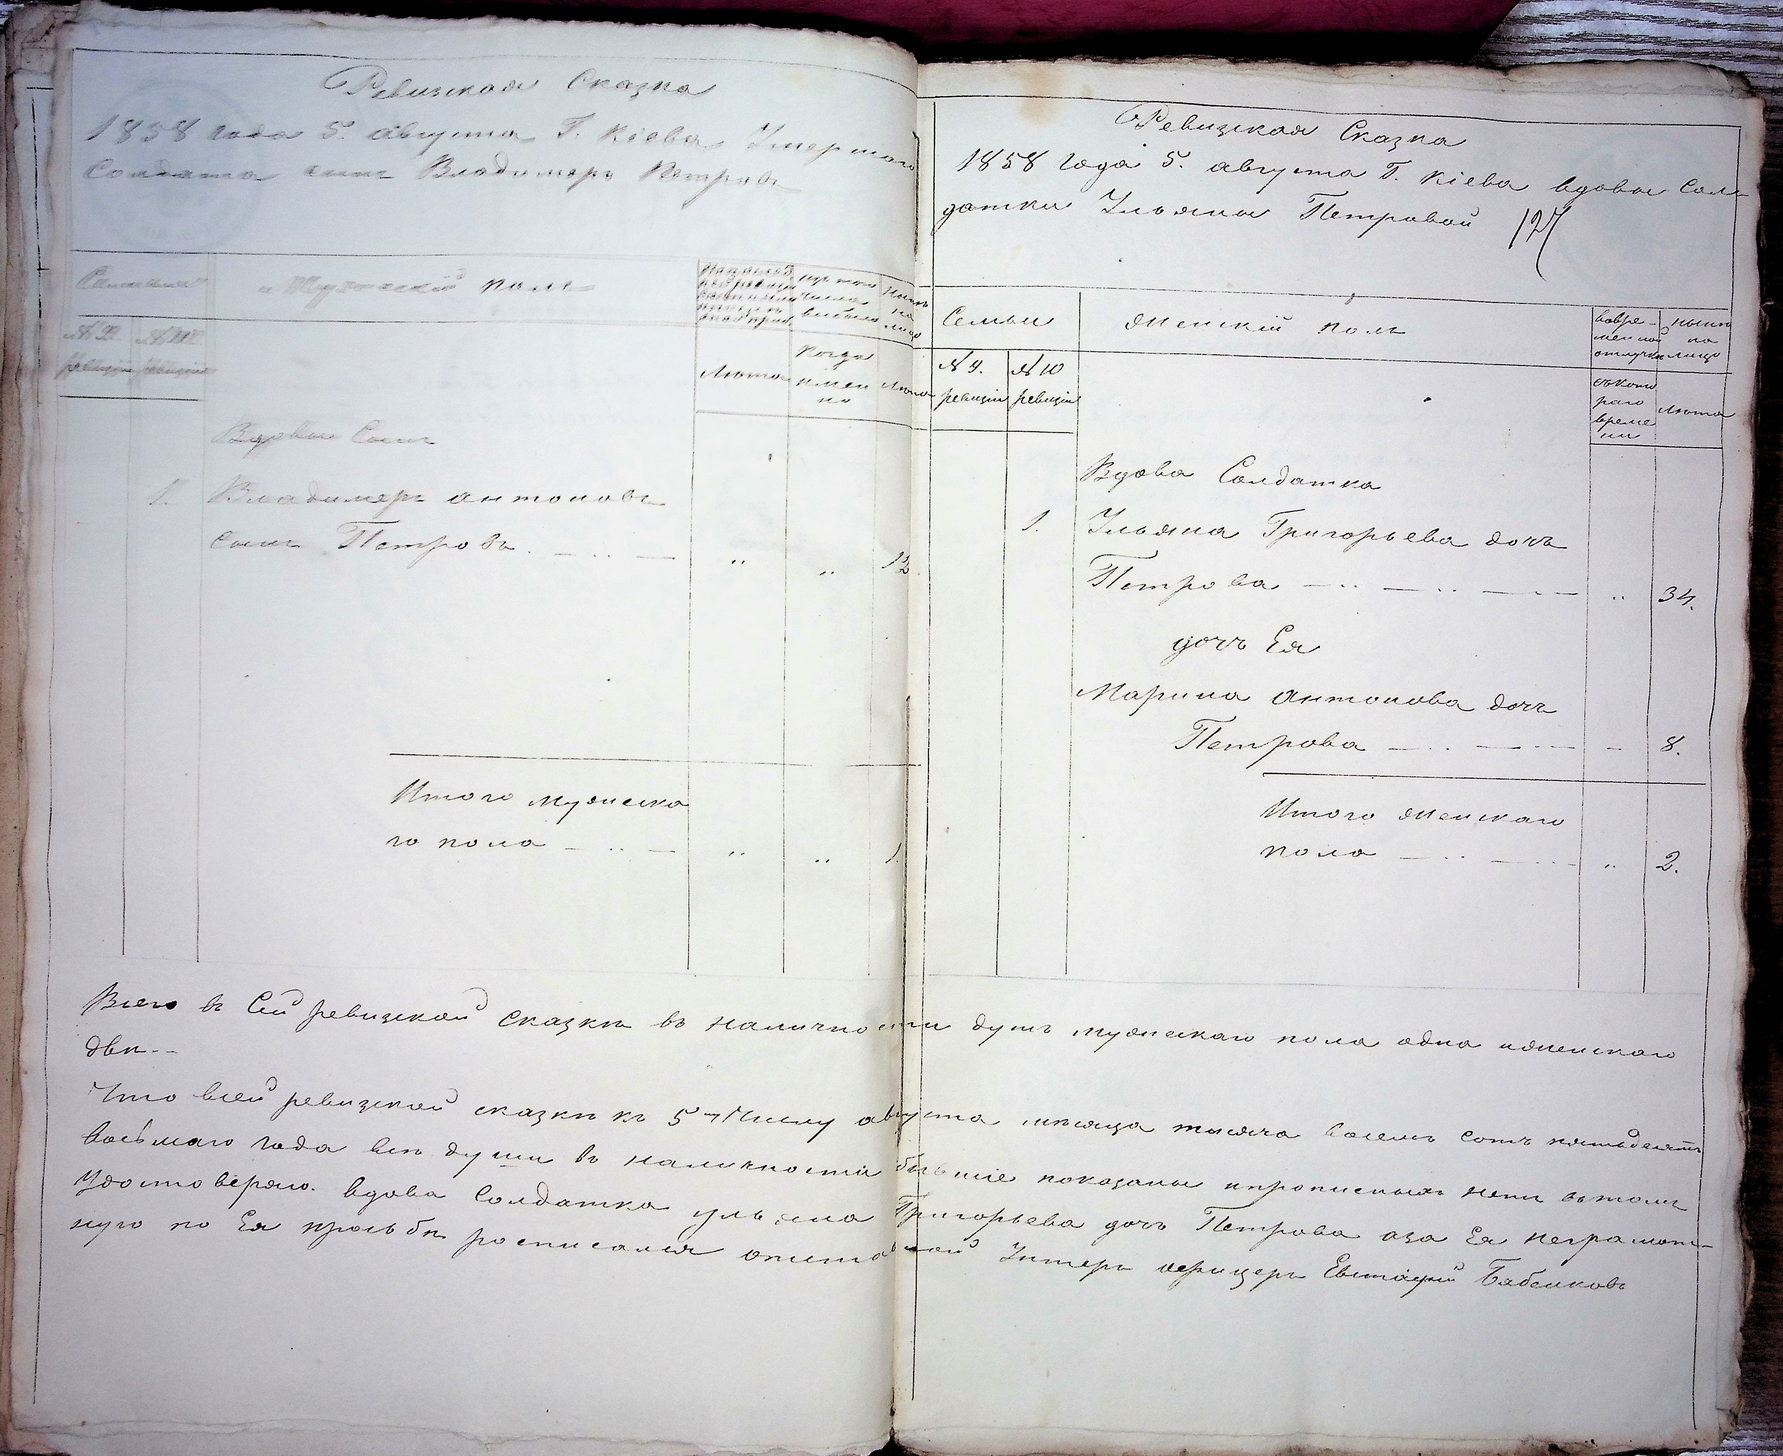 Ревизская Сказка
1858 года 5. августа Г. Кіева Умершаго
Солдата сынъ Владимеръ Петровъ
Мужескій полъ
ревизіи ревизіи
Лѣта
когда
имен
но
Лѣта
Вдовы Сынъ
1. Владимеръ антоновъ
сынъ Петровъ. — .. — „ „ 12.
Итого мужеска
го пола — .. — „ „ 1.
Ревизская Сказка
1858 года 5. августа Г. Кіева вдовы Сол-
датки Ульяны Петровой 127
Семьи
Женскій полъ
вовре-
менной
отлучки
нынѣ
на
лицо
№ 9. ревизіи
№ 10 ревизіи
съкото
раго
време
ни
лѣта
Вдова Солдатка
1. Ульяна Григорьева дочь
Петрова — .. — .. — — „ 34.
дочь Ея
Марина антонова дочь
Петрова — .. — .. — 8.
Итого женскаго
пола — .. — .. „ 2.
Всего въ Сей ревизской сказкѣ въ наличности душъ мужескаго пола одна иженскаго
двѣ. –
Что всей ревизской сказкѣ къ 5 Числу августа мѣсяца тысяча восемь сотъ пятьдесятъ
восьмаго года всѣ души въ наличности бывшіе показаны ипрописныхъ нетъ вътомъ
удостоверяю. вдова Солдатка ульяна Григорьева дочь Петрова аза Ея неграмот-
ную по Ея прозьбѣ росписался отставной Унтеръ офицеръ Евстафій Бабенковъ